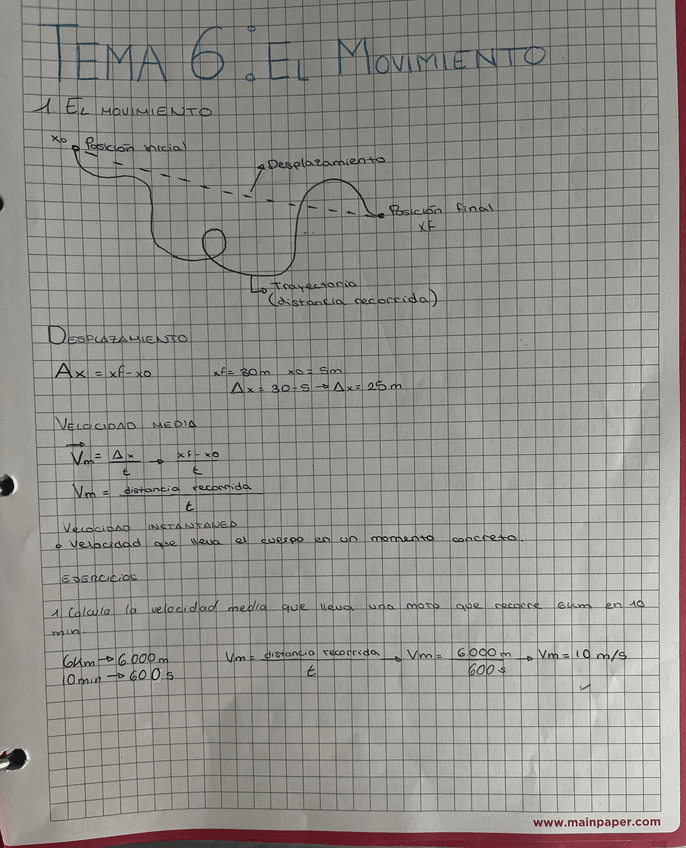 TEMA 6: EL MOVIMIENTO
1 EL MOVIMIENTO
x0 Posición inicial
Desplazamiento
Posición final
xf
Trayectoria
(distancia recorrida)
DESPLAZAMIENTO
Δx = xf-x0 xf= 30m x0= 5m
Δx = 30-5 → Δx = 25m
VELOCIDAD MEDIA
Vm = Δx/t → xf-x0/t
Vm = distancia recorrida/t
VELOCIDAD INSTANTANEA
• Velocidad que lleva el cuerpo en un momento concreto.
EJERCICIOS
1 Calcula la velocidad media que lleva una moto que recorre 6km en 10
min.
6km → 6.000m Vm = distancia recorrida/t → Vm = 6000m/600s → Vm = 10 m/s
10min → 600s
www.mainpaper.com